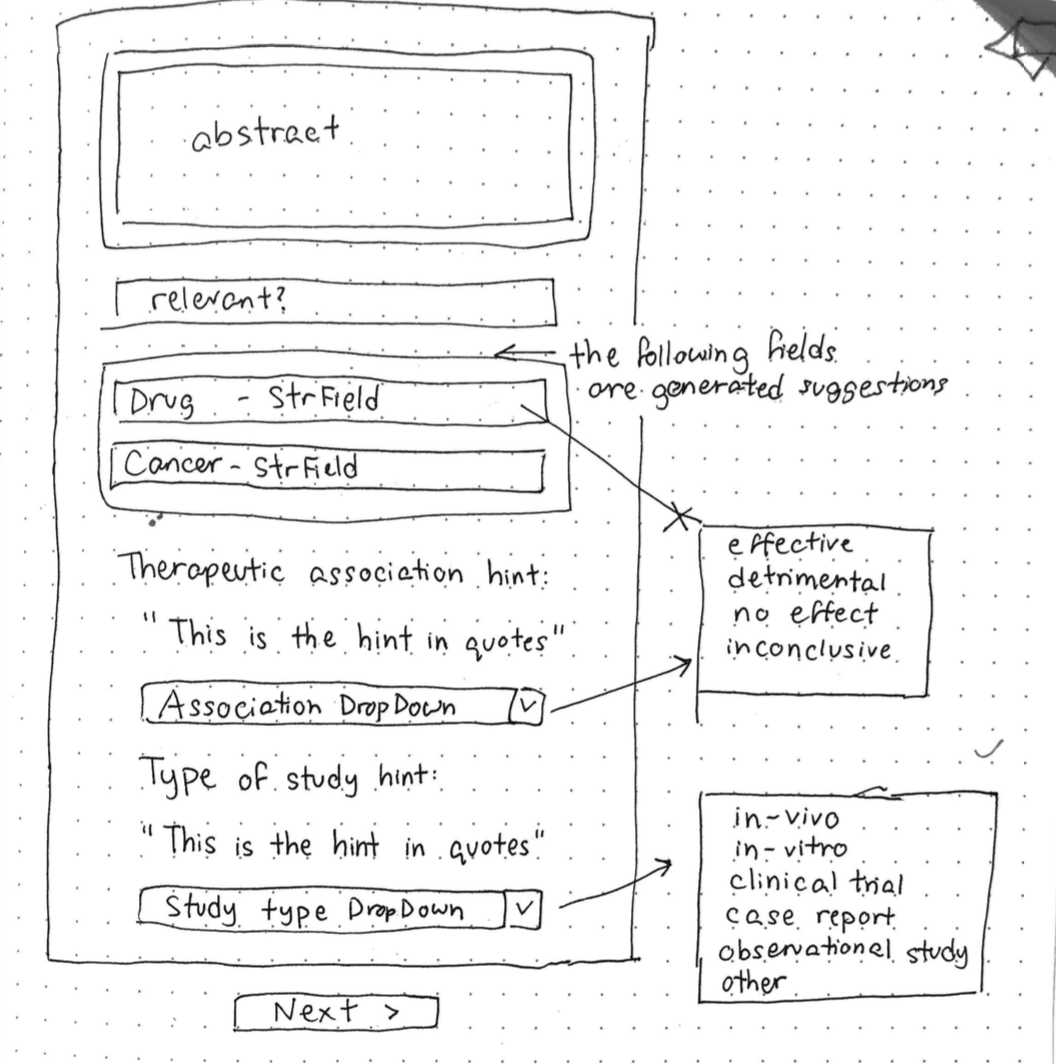 abstract
relevant?
the following fields
are generated suggestions
Drug - StrField
Cancer - StrField
Therapeutic association hint:
"This is the hint in quotes"
Association DropDown
effective
detrimental
no effect
inconclusive
Type of study hint:
"This is the hint in quotes"
Study type DropDown
in-vivo
in-vitro
clinical trial
case report
observational study
other
Next >